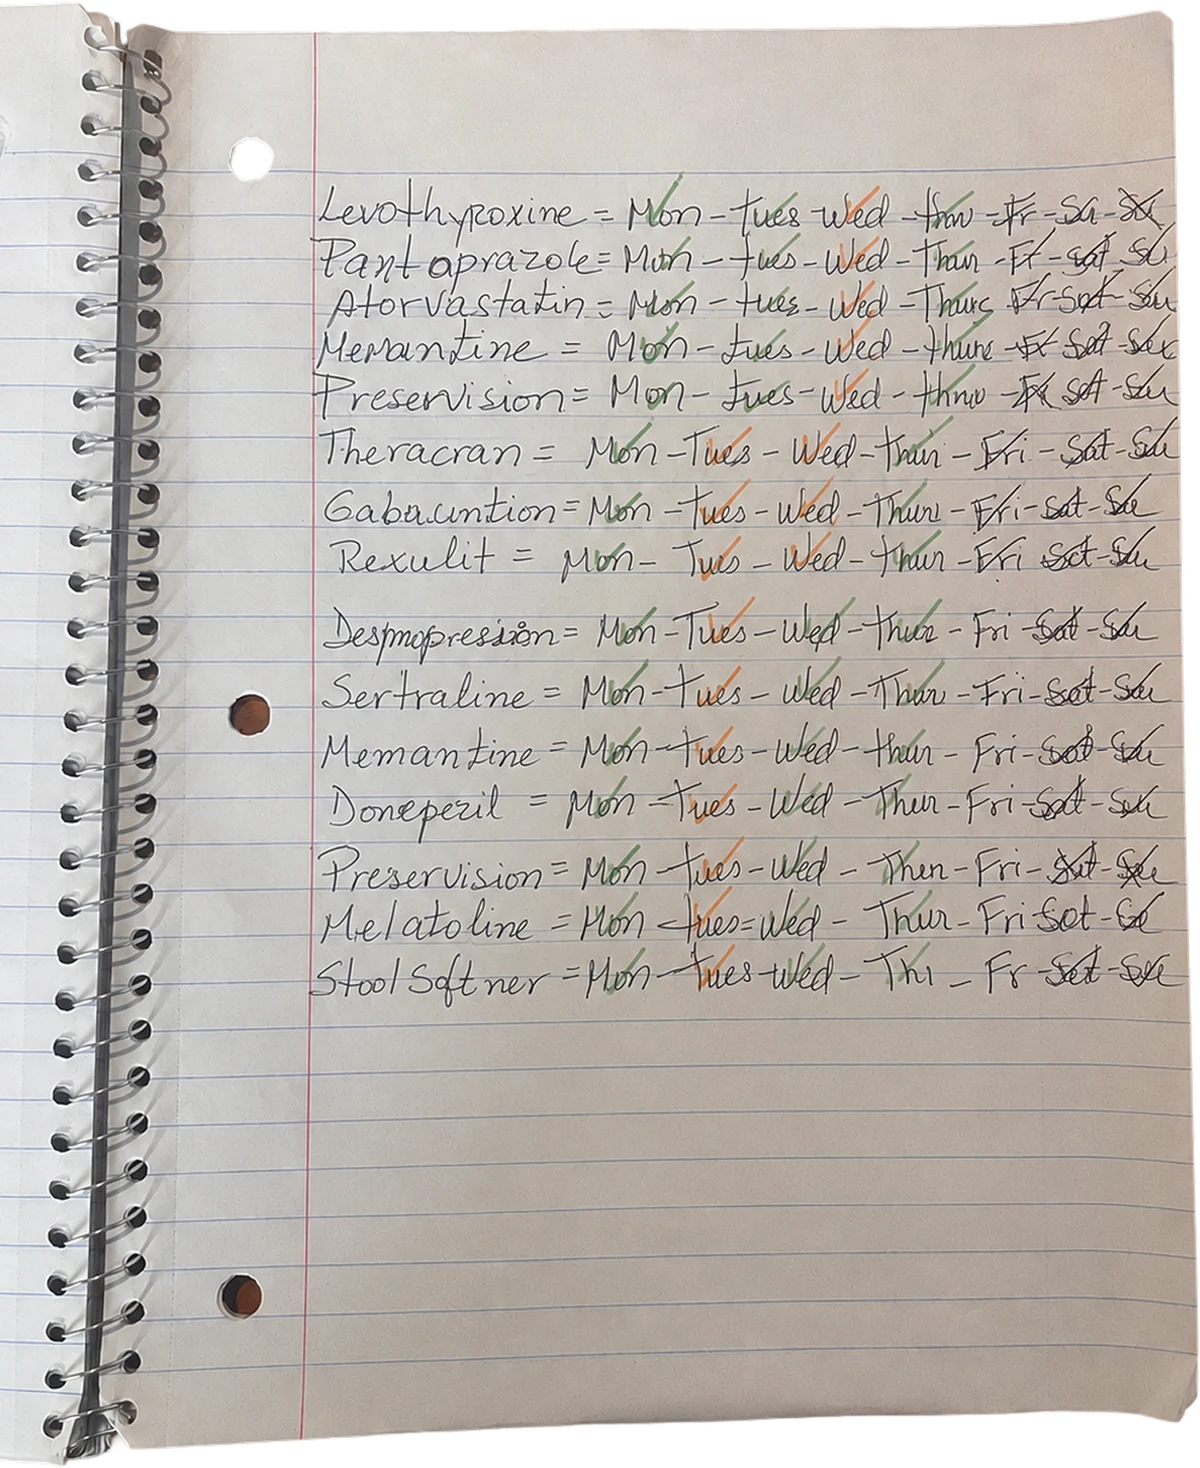 Levothyroxine = Mon - tues - Wed - thu - Fr - Sa - Su
Pantoprazole = Mon - tues - Wed - Thur - Fr - sat Su
Atorvastatin = Mon - tues - Wed - Thurs Fr - Sat - Su
Memantine = Mon - tues - Wed - thurs - Fr Sat - Su
Preservision = Mon - tues - Wed - thu - Fr Sat - Su
Theracran = Mon - Tues - Wed - Thur - Fri - Sat - Su
Gabauntion = Mon - Tues - Wed - Thur - Fri - Sat - Su
Rexulit = Mon - Tues - Wed - thur - Fri Sat - Su
Mon - Tues - Wed - thur - Fri - Sat - Su
Sertraline = Mon - tues - Wed - Thur - Fri - Sat - Su
Memantine = Mon - tues - Wed - thur - Fri - Sat - Su
Donepezil = Mon - Tues - Wed - Thur - Fri - Sat - Su
Preservision = Mon - tues - Wed - Thur - Fri - Sat - Su
Melatoline = Mon - tues = Wed - Thur - Fri Sat - Su
Stool Softner = Mon - tues - Wed - Thr - Fr - Sat - Su